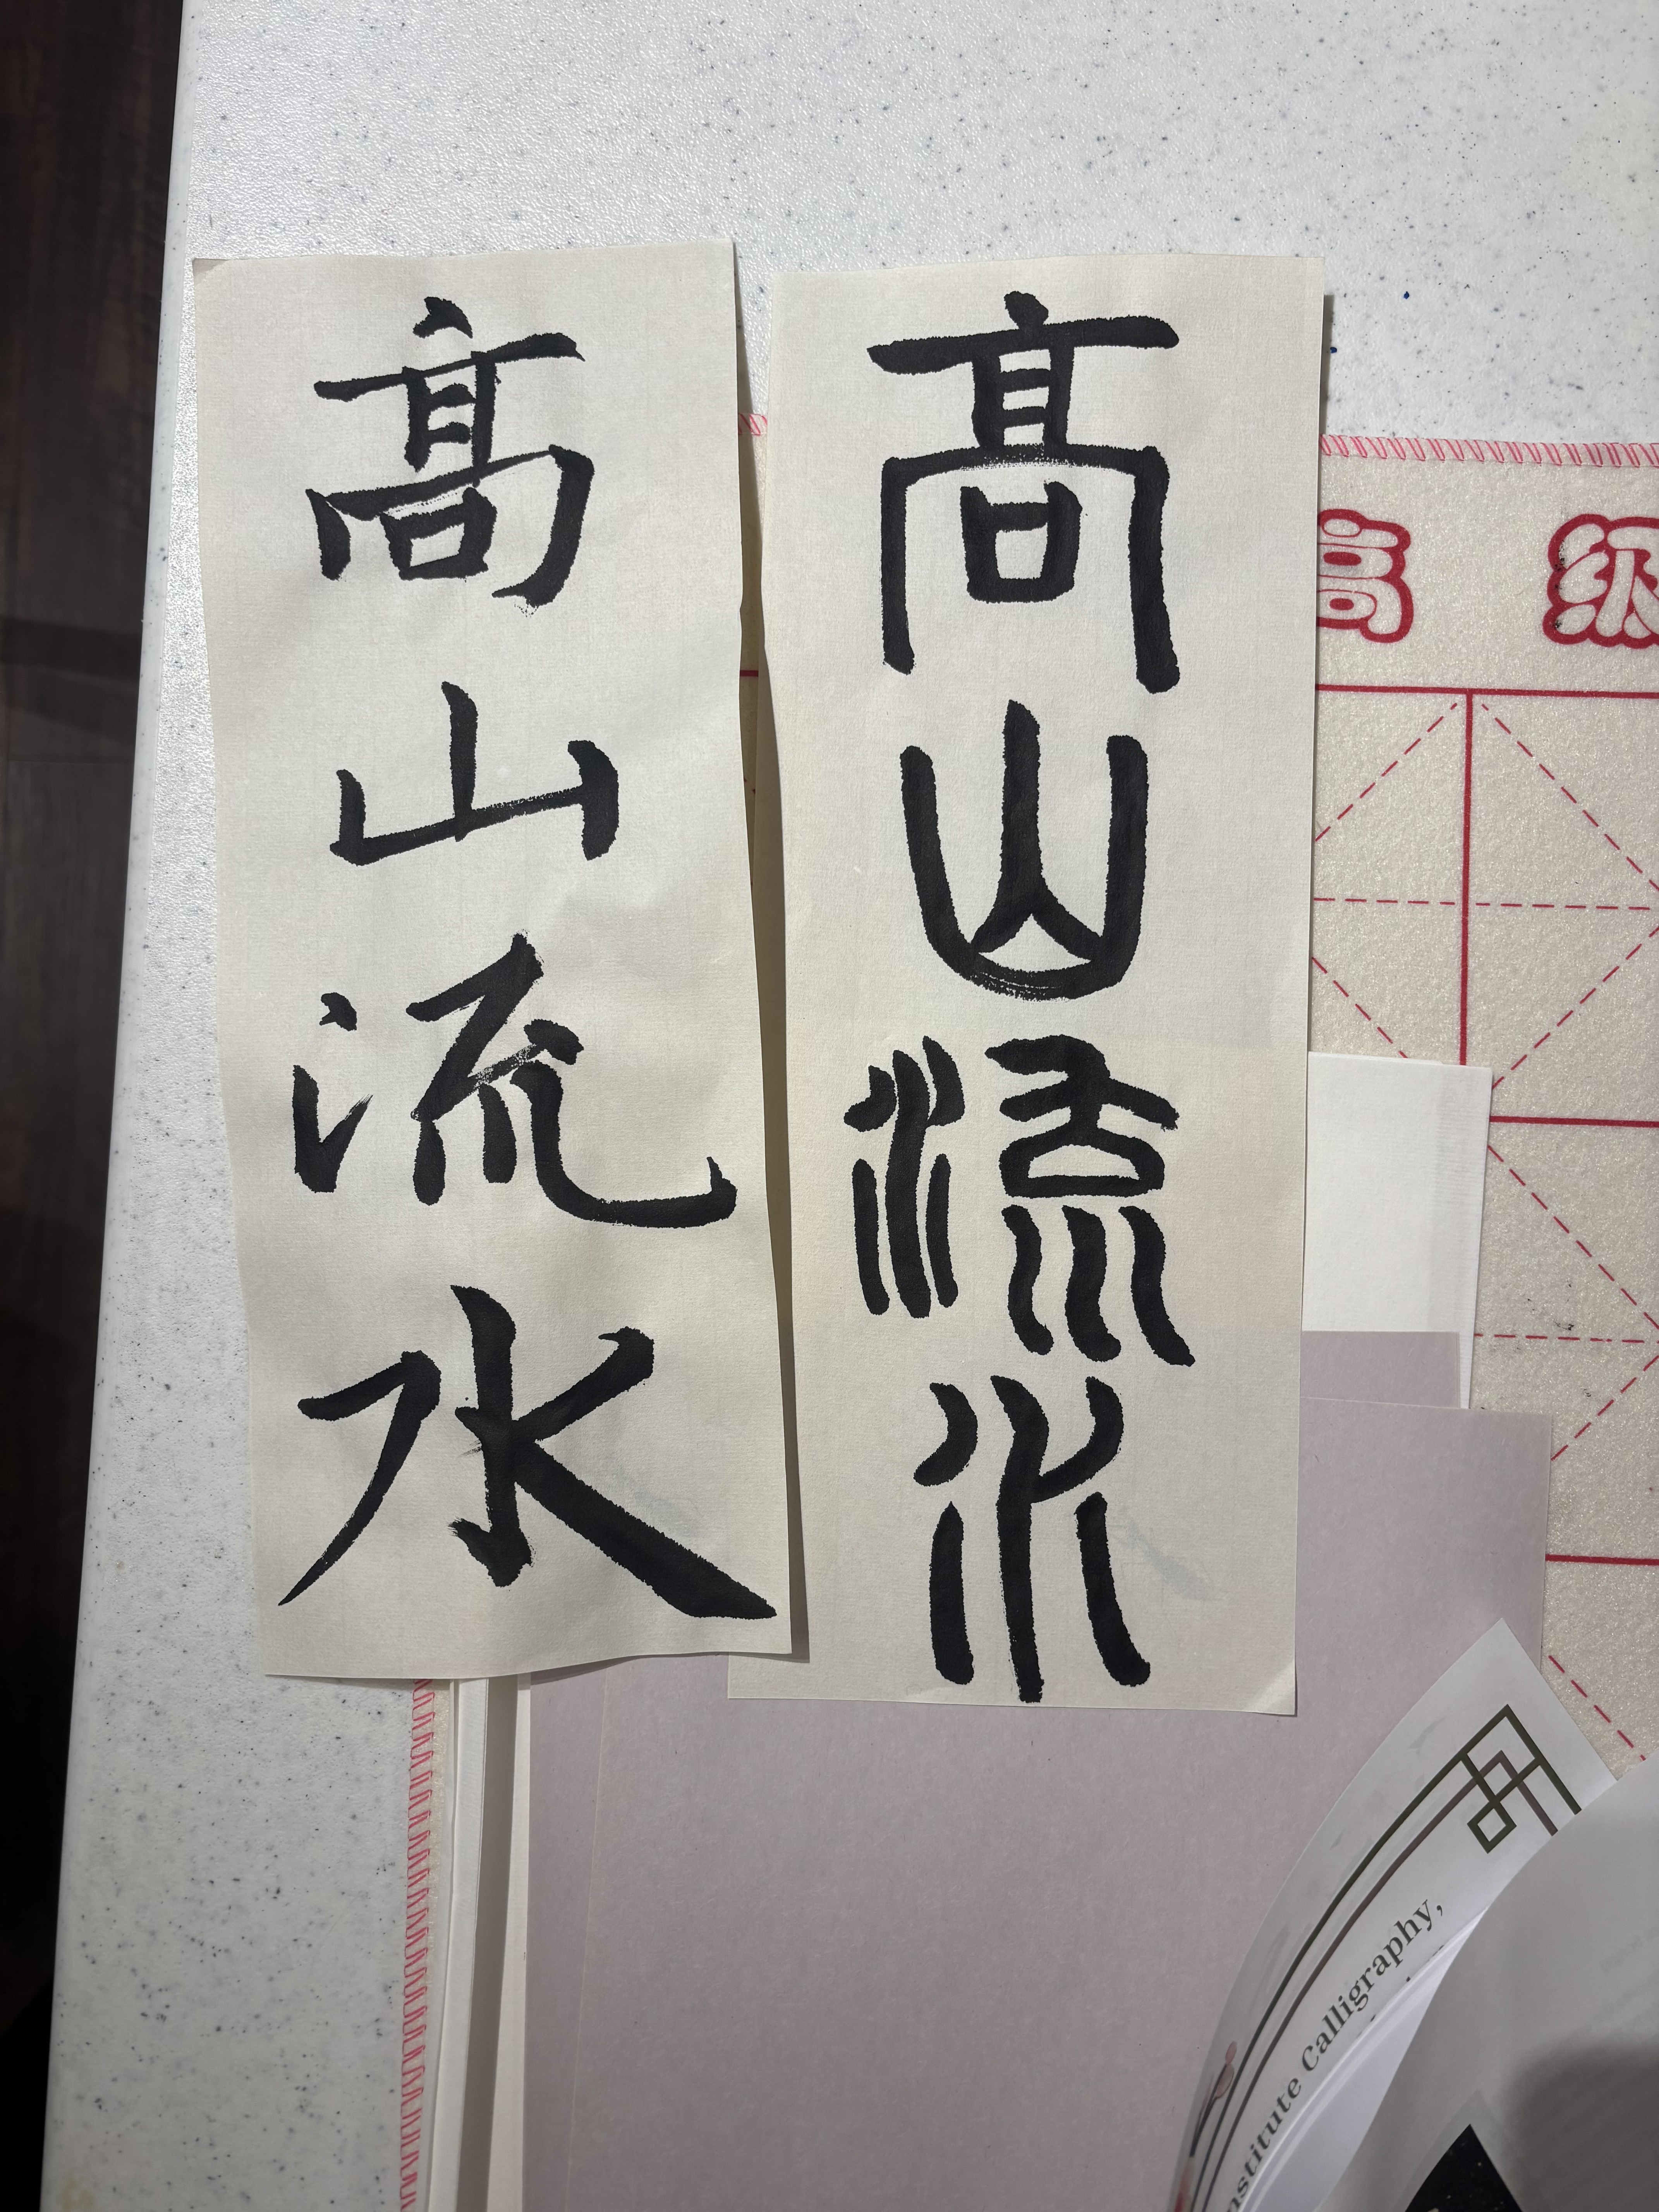 髙山流水
髙山流水
高级
nstitute Calligraphy,